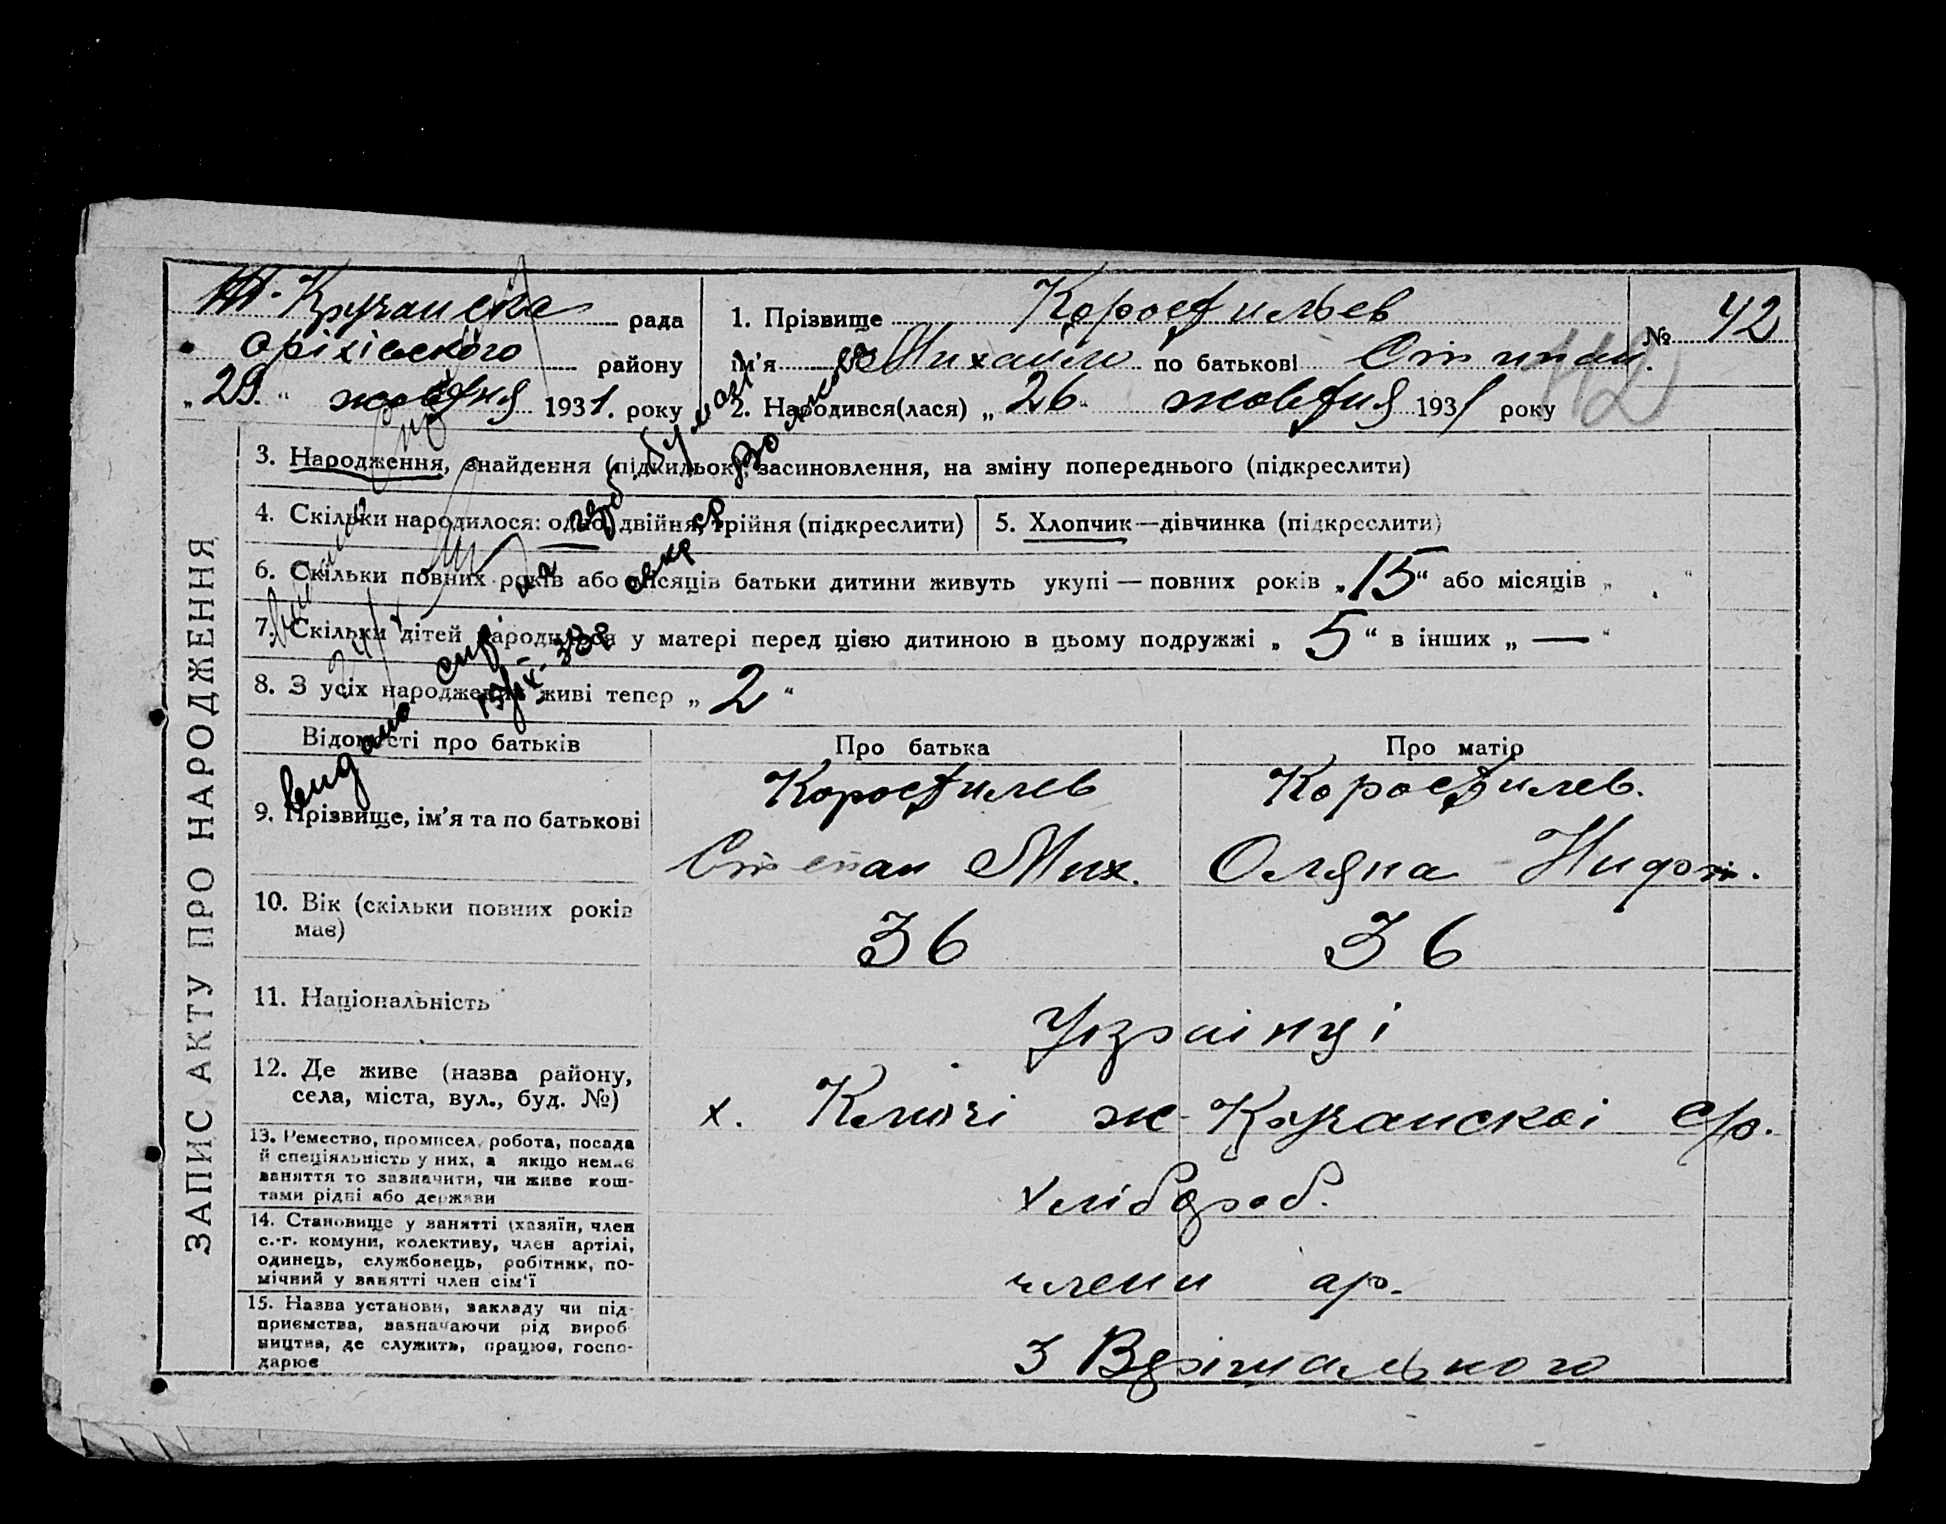 рада
Оріхівського району
„29“ жовтня 1931. року
1. Прізвище Коростильев
№ 42
ім'я Михайло по батькові
2. Народився(лася) „26“ жовтня 1931 року
112
3. Народження, знайдення (підкидьок), засиновлення, на зміну попереднього (підкреслити)
4. Скільки народилося: одно, двійня, трійня (підкреслити)
5. Хлопчик—дівчинка (підкреслити)
6. Скільки повних років або місяців батьки дитини живуть укупі — повних років „15“ або місяців „ “
7. Скільки дітей народилося у матері перед цією дитиною в цьому подружжі „5“ в інших „—“
8. З усіх народжених живі тепер „2“
Відомості про батьків
Про батька
Про матір
9. Прізвище, ім'я та по батькові
Коростилев
Степан Мих.
Коростилев.
Оляна
10. Вік (скільки повних років має)
36
36
11. Національність
Українці
12. Де живе (назва району,
села, міста, вул., буд. №)
х. Ключі ж-Кручанскоі с/р.
13. Ремество, промисел, робота, посада
й спеціяльність у них, а якщо немає
заняття то зазначити, чи живе кош-
тами рідні або держави
хлібороб.
14. Становище у занятті (хазяїн, член
с.-г. комуни, колективу, член артілі,
одинець, службовець, робітник, по-
мічний у занятті член сім'ї
члени ар.
15. Назва установи, закладу чи під-
приємства, зазначаючи рід вироб-
ництва, де служить, працює, госпо-
дарює
ЗАПИС АКТУ ПРО НАРОДЖЕННЯ
видано